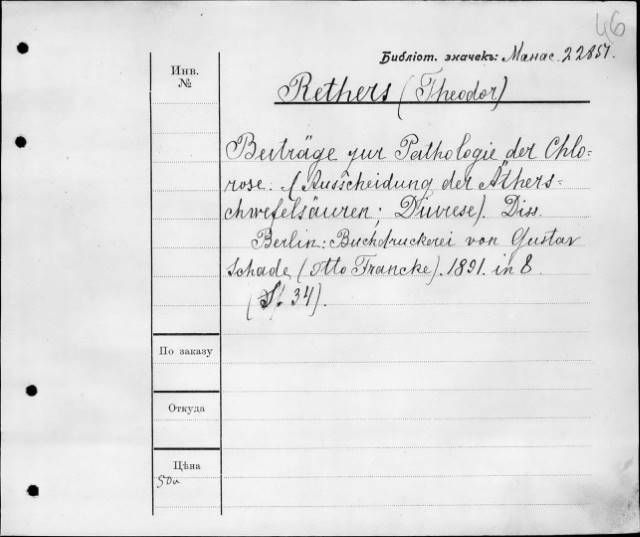 46
Библіот. значекъ: Манас. 22857.
Инв.
№
Rethers (Theodor)
Beiträge zur Pathologie der Chlo=
rose. (Ausscheidung der Äthers=
chwefelsäuren; Diurese). Diss.
Berlin: Buchdruckerei von Gustav
Schade (Otto Francke). 1891. in 8.
(S. 34).
По заказу
Откуда
Цѣна